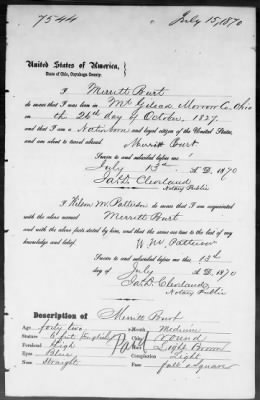 7544
July 15, 1870
United States of America,
State of Ohio, Cuyahoga County.
I Merritt Burt
do swear that I was born in Mt Gilead Morrow Co. Ohio
on the 26th day of October, 1827.
and that I am a Native born and loyal citizen of the United States,
and am about to travel abroad.
Merritt Burt
Sworn to and subscribed before me
July 13th A.D. 1870
Jas D. Cleveland
Notary Public
I Wilson M. Patterson do swear that I am acquainted
with the above named Merritt Burt
and with the above facts stated by him, and that the same are true to the best of my
knowledge and belief.
W. M. Patterson
Sworn to and subscribed before me this 13th
day of July A.D. 1870
Jas D. Cleveland
Notary Public
Description of Merritt Burt
Age: forty two
Mouth Medium
Stature: 6 feet (English)
Chin: round
Forehead High
Hair: Light Brown
Eyes: Blue
Complexion Light
Nose: Straight
Face: full & square
Paid